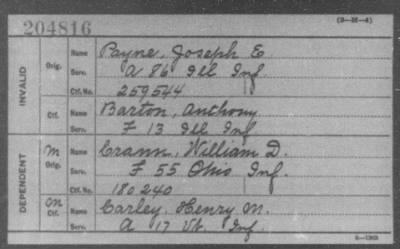 204816 (3-25-4)
INVALID Orig. Name Payne, Joseph E
Serv. A 86 Ill Inf.
Ctf. No. 259544
Ctf. Name Barton, Anthony
Serv. F 13 Ill Inf
DEPENDENT M Orig. Name Crann, William D.
Serv. F 55 Ohio Inf.
Ctf. No. 180240
M Ctf. Name Carley, Henry M.
Serv. A 17 Vt. Inf.